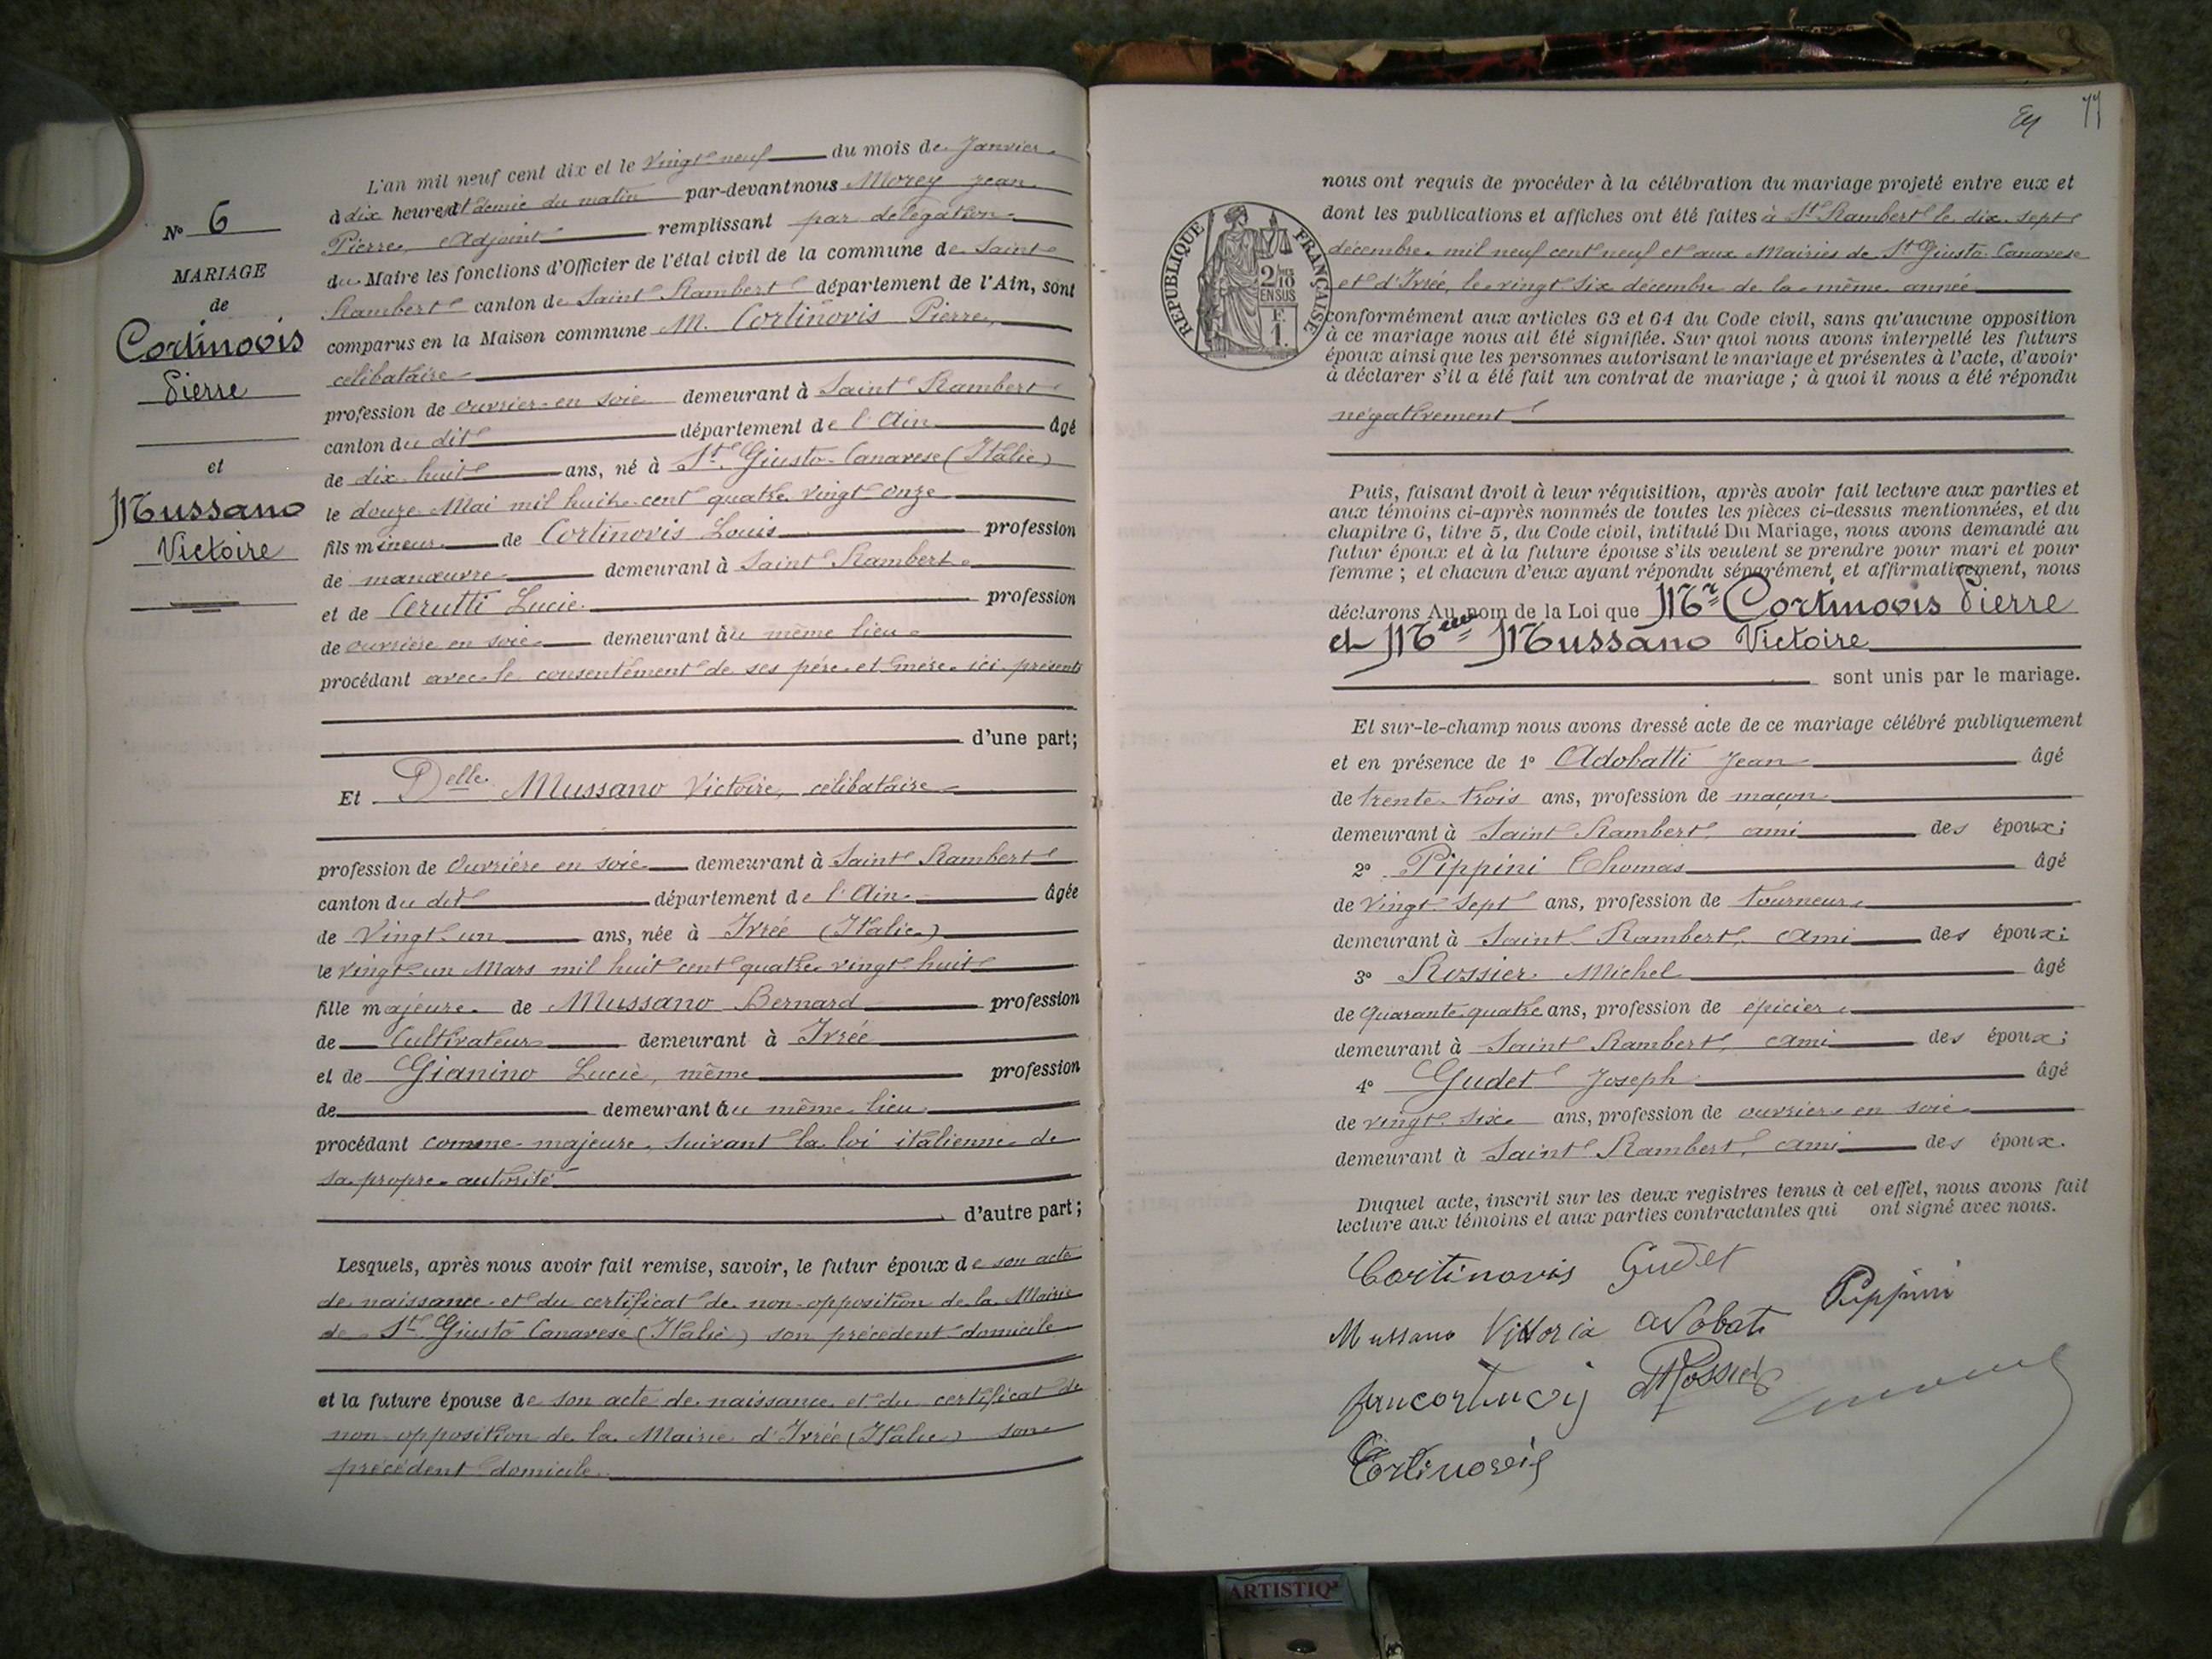 N° 6
MARIAGE
de
Cortinovis
Pierre
et
Mussano
Victoire
L'an mil neuf cent dix et le vingt-neuf du mois de Janvier
à dix heures et demie du matin par-devant nous Morey Jean
Pierre, Adjoint remplissant par délégation
du Maire les fonctions d'Officier de l'état civil de la commune de Saint
Rambert canton de Saint Rambert département de l'Ain, sont
comparus en la Maison commune M. Cortinovis Pierre,
célibataire
profession de ouvrier en soie demeurant à Saint Rambert
canton du dit département de l'Ain âgé
de dix huit ans, né à St. Giusto-Canavese (Italie)
le douze Mai mil huit cent quatre vingt onze
fils mineur de Cortinovis Louis profession
de manœuvre demeurant à Saint Rambert
et de Cerutti Lucie profession
de ouvrière en soie demeurant au même lieu
procédant avec le consentement de ses père et mère ici présents
d'une part;
Et Delle Mussano Victoire, célibataire
profession de Ouvrière en soie demeurant à Saint Rambert
canton du dit département de l'Ain âgée
de Vingt un ans, née à Ivrée (Italie)
le vingt-un Mars mil huit cent quatre vingt huit
fille majeure de Mussano Bernard profession
de Cultivateur demeurant à Ivrée
et de Gianino Lucie, même profession
de demeurant au même lieu
procédant comme majeure, suivant la loi italienne de
sa propre autorité
d'autre part;
Lesquels, après nous avoir fait remise, savoir, le futur époux de son acte
de naissance et du certificat de non-opposition de la Mairie
de St Giusto Canavese (Italie) son précédent domicile
et la future épouse de son acte de naissance et du certificat de
non opposition de la Mairie d'Ivrée (Italie) son
précédent domicile
77
RÉPUBLIQUE FRANÇAISE
2/10
EN SUS
F.
1.
nous ont requis de procéder à la célébration du mariage projeté entre eux et
dont les publications et affiches ont été faites à St Rambert le dix sept
décembre mil neuf cent neuf et aux Mairies de St Giusto Canavese
et d'Ivrée, le vingt six décembre de la même année
conformément aux articles 63 et 64 du Code civil, sans qu'aucune opposition
à ce mariage nous ait été signifiée. Sur quoi nous avons interpellé les futurs
époux ainsi que les personnes autorisant le mariage et présentes à l'acte, d'avoir
à déclarer s'il a été fait un contrat de mariage; à quoi il nous a été répondu
négativement
Puis, faisant droit à leur réquisition, après avoir fait lecture aux parties et
aux témoins ci-après nommés de toutes les pièces ci-dessus mentionnées, et du
chapitre 6, titre 5, du Code civil, intitulé Du Mariage, nous avons demandé au
futur époux et à la future épouse s'ils veulent se prendre pour mari et pour
femme; et chacun d'eux ayant répondu séparément et affirmativement, nous
déclarons Au nom de la Loi que Mr Cortinovis Pierre
et Melle Mussano Victoire
sont unis par le mariage.
Et sur-le-champ nous avons dressé acte de ce mariage célébré publiquement
et en présence de 1° Adobatti Jean âgé
de trente-trois ans, profession de maçon
demeurant à Saint Rambert, ami des époux;
2° Pippini Thomas âgé
de vingt sept ans, profession de tourneur,
demeurant à Saint Rambert, ami des époux;
3° Rossier Michel âgé
de quarante-quatre ans, profession de épicier
demeurant à Saint Rambert, ami des époux;
4° Gudet Joseph âgé
de vingt six ans, profession de ouvrier en soie
demeurant à Saint Rambert, ami des époux.
Duquel acte, inscrit sur les deux registres tenus à cet effet, nous avons fait
lecture aux témoins et aux parties contractantes qui ont signé avec nous.
Cortinovis Gudet
Pippini
Mussano Vittoria Adobati
MRossier
Cortinovis
ARTISTIQ